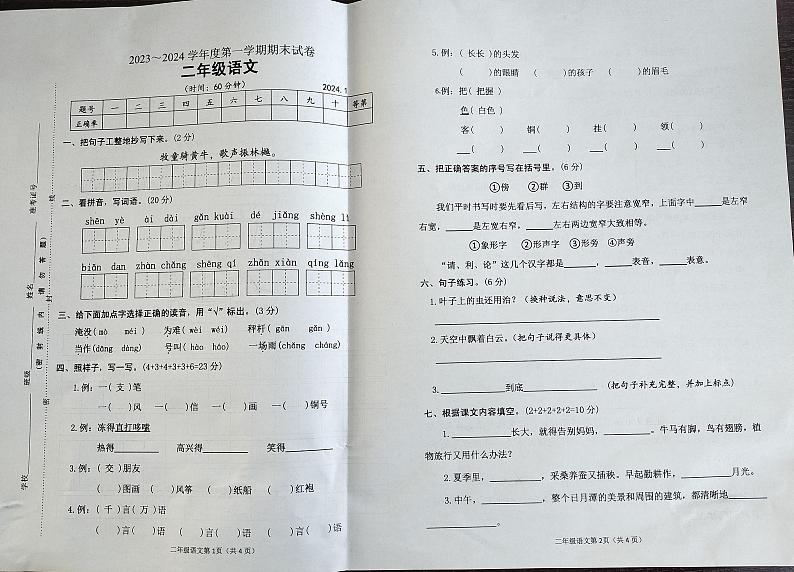 2023～2024 学年度第一学期期末试卷
二年级语文
（时间：60 分钟） 2024.1
题号 一 二 三 四 五 六 七 八 九 十 等第
正确率
一、把句子工整地抄写下来。(2 分)
牧童骑黄牛，歌声振林樾。
二、看拼音，写词语。(20 分)
shēn yè ài dài gǎn kuài dé jiǎng shèng lì
biǎn dan zhàn chǎng shēng qí zhǎn xiàn qíng lǎng
三、给下面加点字选择正确的读音，用“√”标出。(3 分)
淹没(mò méi ) 为难(wèi wéi) 秤杆( gān gǎn )
当作(dāng dàng) 号叫(háo hào) 一场雨(chǎng cháng)
四、照样子，写一写。(4+3+4+3+3+6=23 分)
1. 例：一( 支 )笔
一( )风 一( )信 一( )画 一( )铜号
2. 例：冻得直打哆嗦
热得________ 高兴得________ 笑得________
3. 例：( 交 )朋友
( )图画 ( )风筝 ( )纸船 ( )红袍
4. 例：( 千 )言( 万 )语
( )言( )语 ( )言( )语 ( )言( )语
二年级语文第 1页（共 4 页）
学校________ 班级________ 姓名________ 准考证号________
（密 封 线 内 请 勿 答 题）
密 封 线
5. 例：( 长长 )的头发
( )的眼睛 ( )的孩子 ( )的眉毛
6.例：把( 把握 )
色( 白色 )
客( ) 铜( ) 挂( ) 领( )
__( ) __( ) __( ) __( )
五、把正确答案的序号写在括号里。(6 分)
①傍 ②群 ③到
我们平时书写时要先看后写，左右结构的字要注意宽窄，上面字中______是左窄
右宽，______是左宽右窄，______左右两边宽窄大致相等。
①象形字 ②形声字 ③形旁 ④声旁
“请、利、论”这几个汉字都是______，______表音，______表意。
六、句子练习。(6 分)
1.叶子上的虫还用治？（换种说法，意思不变）
2.天空中飘着白云。(把句子说得更具体)
3.____________到底____________ （把句子补充完整，并加上标点）
七、根据课文内容填空。(2+2+2+2+2=10 分)
1.__________长大，就得告别妈妈，________。牛马有脚，鸟有翅膀，植
物旅行又用什么办法？
2.夏季里，__________，采桑养蚕又插秧。早起勤耕作，________月光。
3.中午，__________，整个日月潭的美景和周围的建筑，都清晰地______
____________。
二年级语文第 2页（共 4 页）